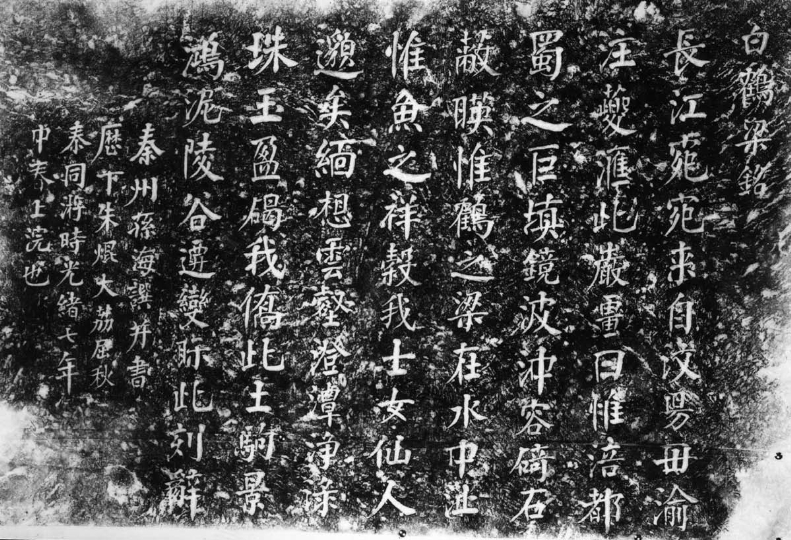 白鶴梁銘
長江菀菀来自汶昜毌渝
注夔滙此巖畺曰惟涪都
蜀之巨填鏡波沖容碕石
蔽暎惟鶴之梁在水中沚
惟魚之祥穀我士女仙人
邈矣緬想雲壑澄潭浄渌
珠玉盈碣我僑此土駒景
鴻泥陵谷遷變眎此刻辭
秦州孫海譔并書
歷下朱焜大荔屈秋
泰同游時光緒七年
中春上浣也